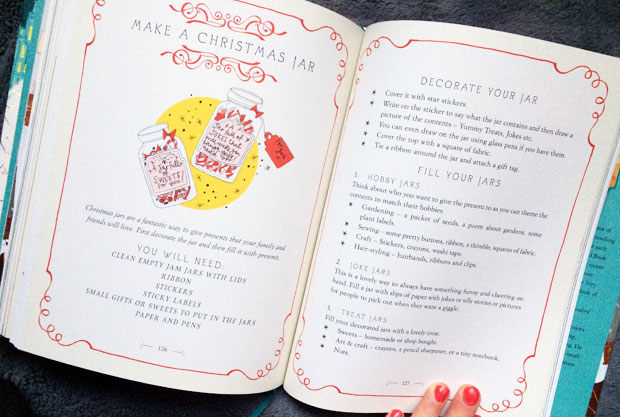 MAKE A CHRISTMAS JAR
A Jar full of
JOKES that
A Jar full
of
SWEETS!
for you!
Christmas jars are a fantastic way to give presents that your family and
friends will love. First decorate the jar and then fill it with presents.
YOU WILL NEED:
CLEAN EMPTY JAM JARS WITH LIDS
RIBBON
STICKERS
STICKY LABELS
SMALL GIFTS OR SWEETS TO PUT IN THE JARS
PAPER AND PENS
126
DECORATE YOUR JAR
* Cover it with star stickers.
* Write on the sticker to say what the jar contains and then draw a
picture of the contents – Yummy Treats, Jokes etc.
* You can even draw on the jar using glass pens if you have them
* Cover the top with a square of fabric.
* Tie a ribbon around the jar and attach a gift tag.
FILL YOUR JARS
1. HOBBY JARS
Think about who you want to give the present to as you can theme the
contents to match their hobbies.
* Gardening – a packet of seeds, a poem about gardens, some
plant labels.
* Sewing – some pretty buttons, ribbon, a thimble, squares of fabric.
* Craft – Stickers, crayons, washi tape.
* Hair-styling – hairbands, ribbons and clips.
2. JOKE JARS
This is a lovely way to always have something funny and cheering on
hand. Fill a jar with slips of paper with jokes or silly stories or pictures
for people to pick out when they want a giggle.
3. TREAT JARS
Fill your decorated jars with a lovely treat.
* Sweets – homemade or shop bought.
* Art & craft – crayons, a pencil sharpener, or a tiny notebook.
* Nuts.
127